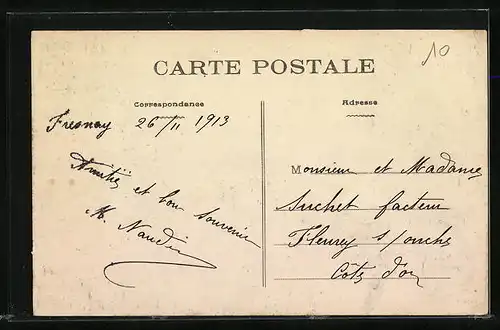 10
CARTE POSTALE
Correspondance
Adresse
Fresnay 26/11 1913
Amitiés et bon souvenir
M. Naudin
Monsieur et Madame
Suchet facteur
Fleurey s/ouche
Côte d'or